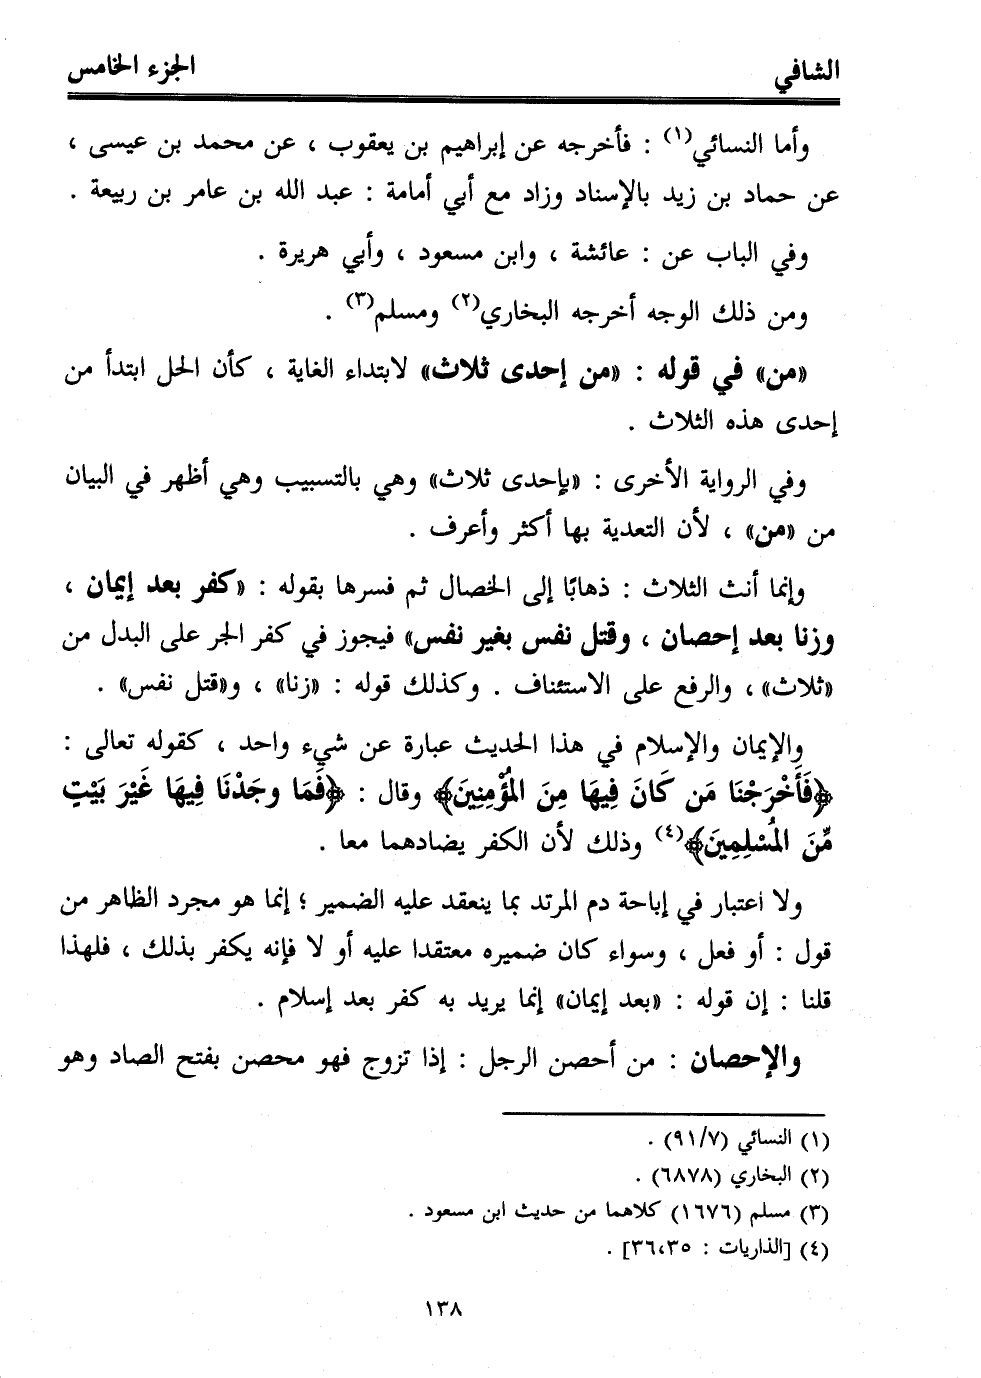 الشافي الجزء الخامس
وأما النسائي(١) : فأخرجه عن إبراهيم بن يعقوب ، عن محمد بن عيسى ،
عن حماد بن زيد بالإسناد وزاد مع أبي أمامة : عبد الله بن عامر بن ربيعة .
وفي الباب عن : عائشة ، وابن مسعود ، وأبي هريرة .
ومن ذلك الوجه أخرجه البخاري(٢) ومسلم(٣) .
«من» في قوله : «من إحدى ثلاث» لابتداء الغاية ، كأن الحل ابتدأ من
إحدى هذه الثلاث .
وفي الرواية الأخرى : «بإحدى ثلاث» وهي بالتسبيب وهي أظهر في البيان
من «من» ، لأن التعدية بها أكثر وأعرف .
وإنما أنث الثلاث : ذهابًا إلى الخصال ثم فسرها بقوله : «كفر بعد إيمان ،
وزنا بعد إحصان ، وقتل نفس بغير نفس» فيجوز في كفر الجر على البدل من
«ثلاث» ، والرفع على الاستئناف . وكذلك قوله : «زنا» ، و«قتل نفس» .
والإيمان والإسلام في هذا الحديث عبارة عن شيء واحد ، كقوله تعالى :
﴿فَأَخْرَجْنَا مَن كَانَ فِيهَا مِنَ المُؤْمِنِينَ﴾ وقال : ﴿فَمَا وجَدْنَا فِيهَا غَيْرَ بَيْتٍ
مِّنَ المُسْلِمِينَ﴾(٤) وذلك لأن الكفر يضادهما معا .
ولا اعتبار في إباحة دم المرتد بما ينعقد عليه الضمير ؛ إنما هو مجرد الظاهر من
قول : أو فعل ، وسواء كان ضميره معتقدا عليه أو لا فإنه يكفر بذلك ، فلهذا
قلنا : إن قوله : «بعد إيمان» إنما يريد به كفر بعد إسلام .
والإحصان : من أحصن الرجل : إذا تزوج فهو محصن بفتح الصاد وهو
(١) النسائي (٩١/٧) .
(٢) البخاري (٦٨٧٨) .
(٣) مسلم (١٦٧٦) كلاهما من حديث ابن مسعود .
(٤) [الذاريات : ٣٦،٣٥] .
١٣٨